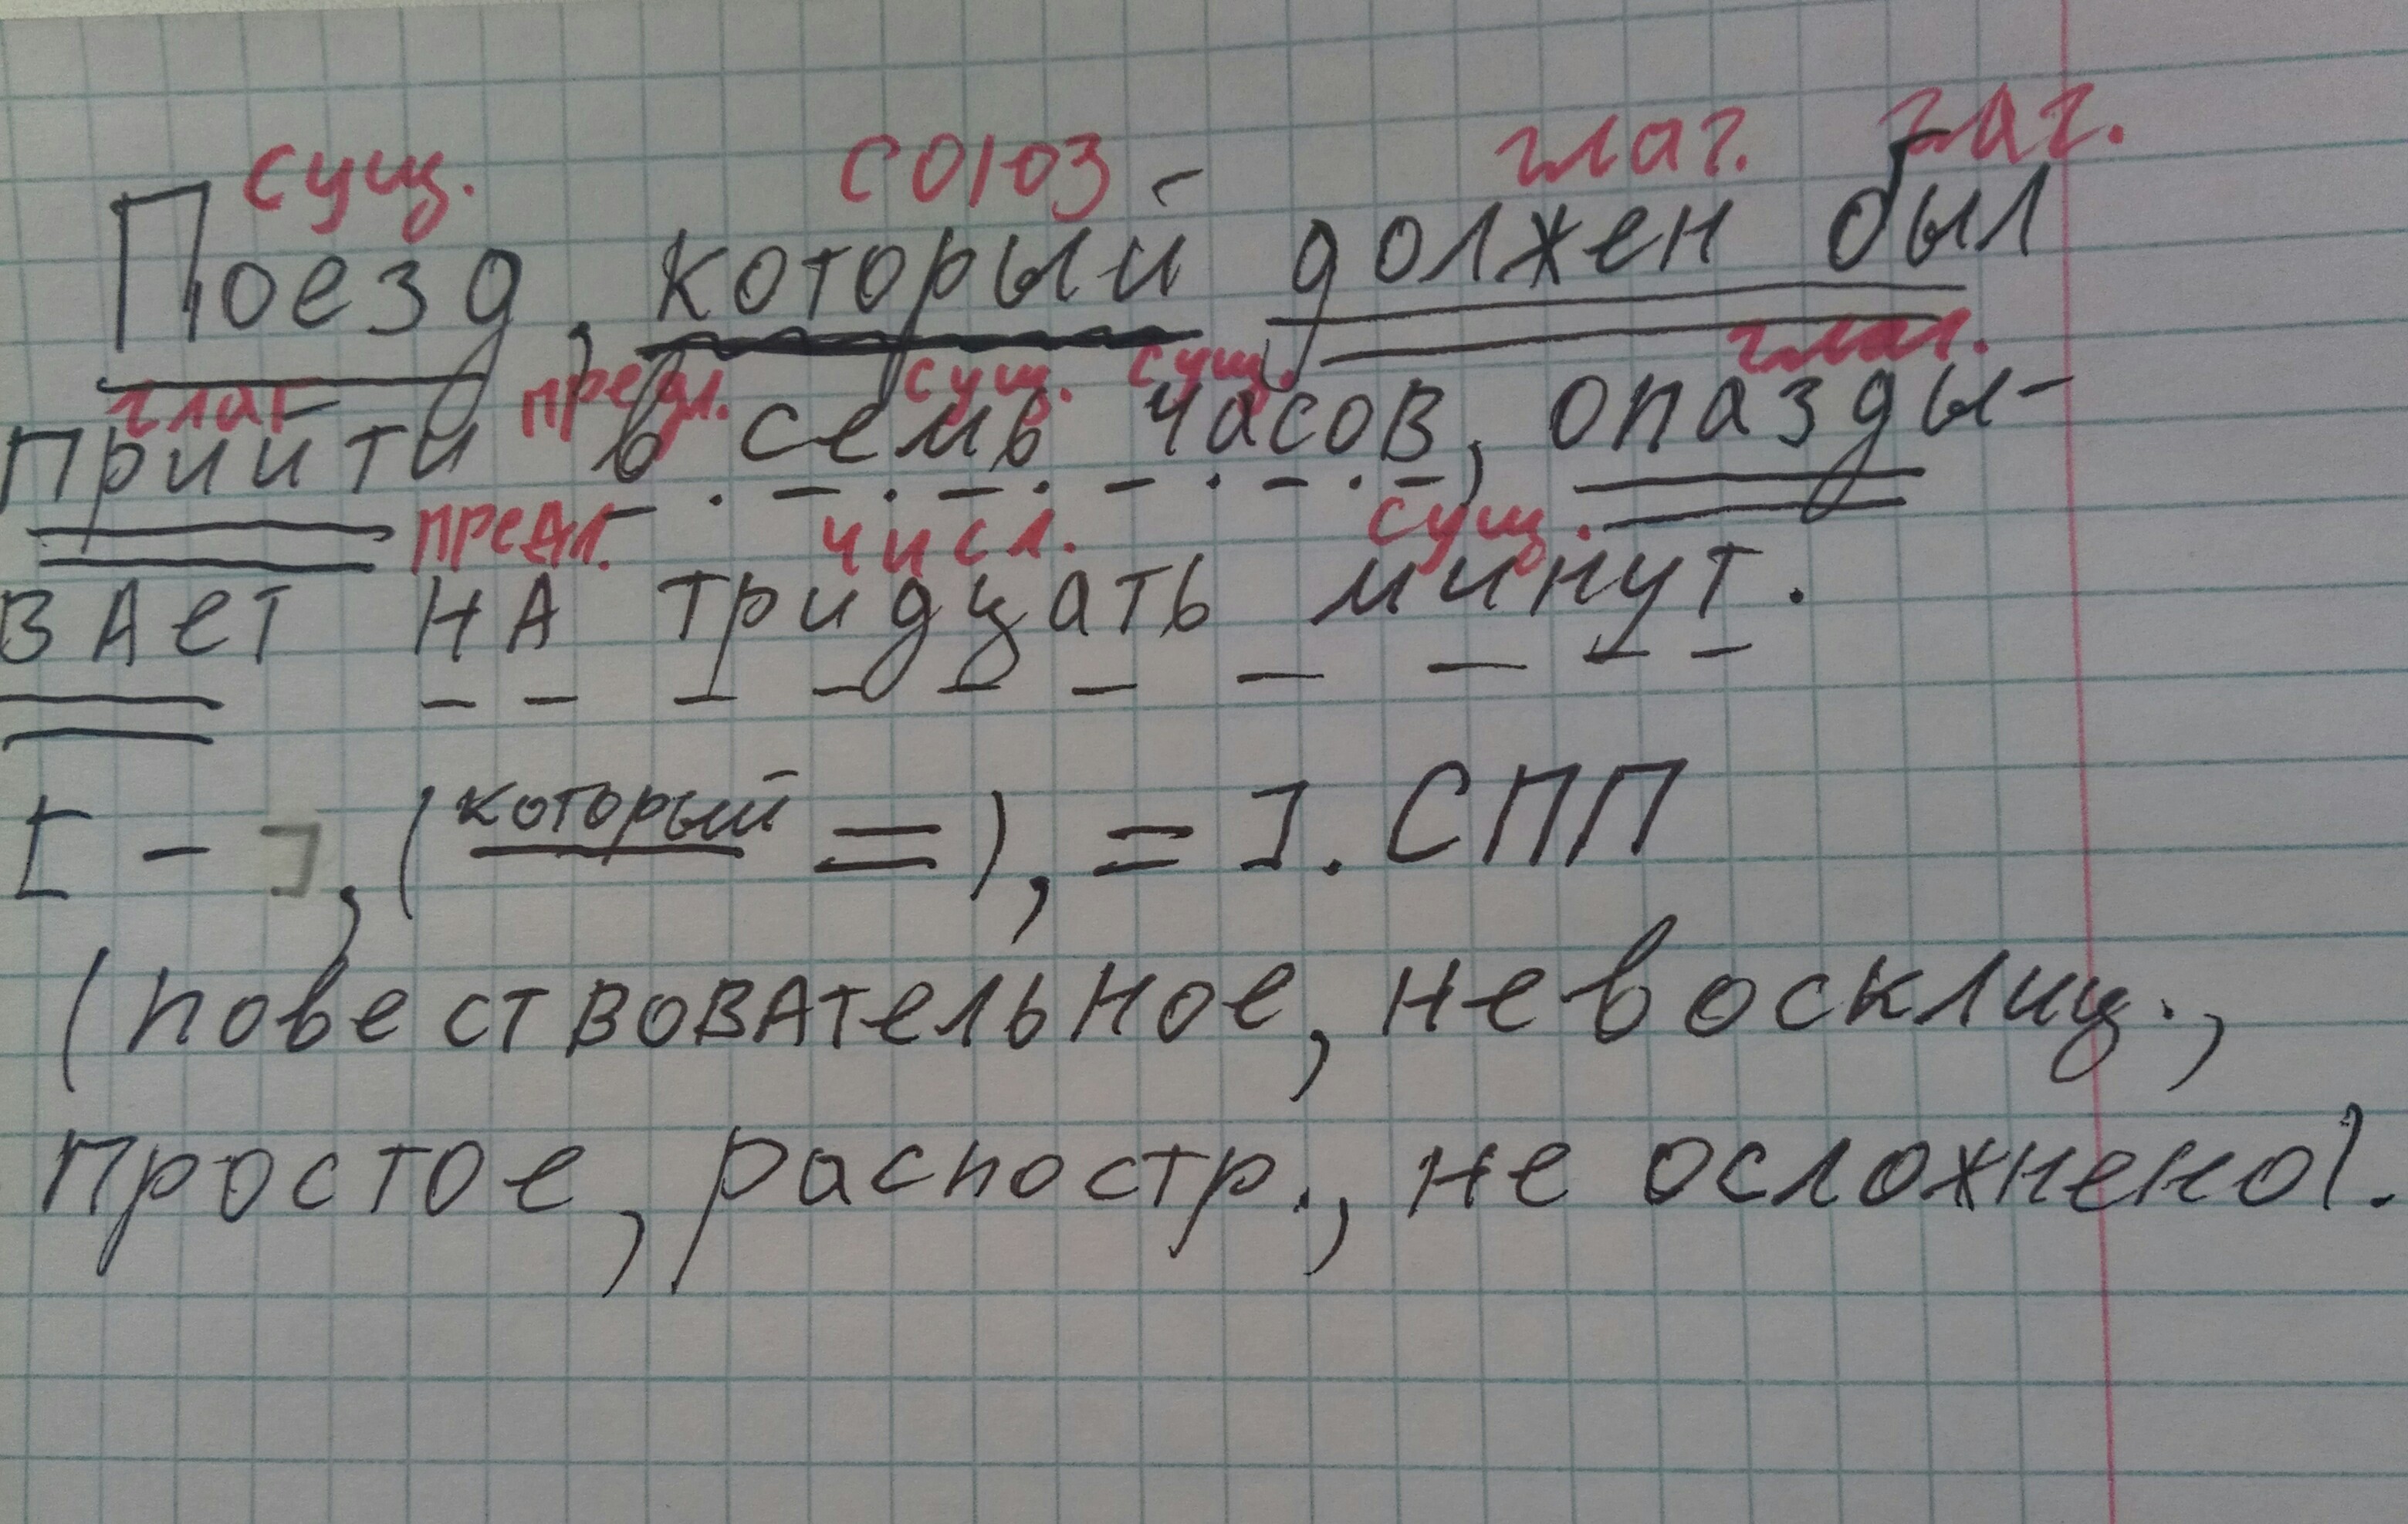 сущ. союз глаг. глаг.
Поезд, который должен был
глаг предл. сущ. сущ. глаг.
прийти в семь часов, опазды-
предл. числ. сущ.
вает на тридцать минут.
[ - ], (который = ), = ]. СПП
(повествовательное, невосклиц.,
простое, распостр., не осложнено).